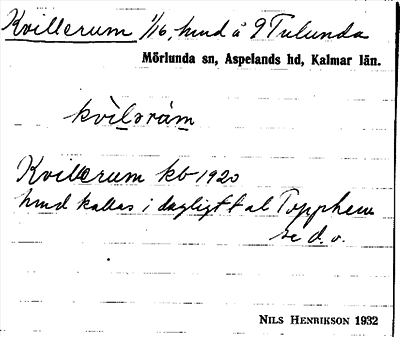 Kvillerum 1/16 hmd å 9 Tulunda
Mörlunda sn, Aspelands hd, Kalmar län.
kvìløràm
Kvillerum kb 1920
hmd kallas i dagligt tal Topphem
se d. o.
NILS HENRIKSON 1932